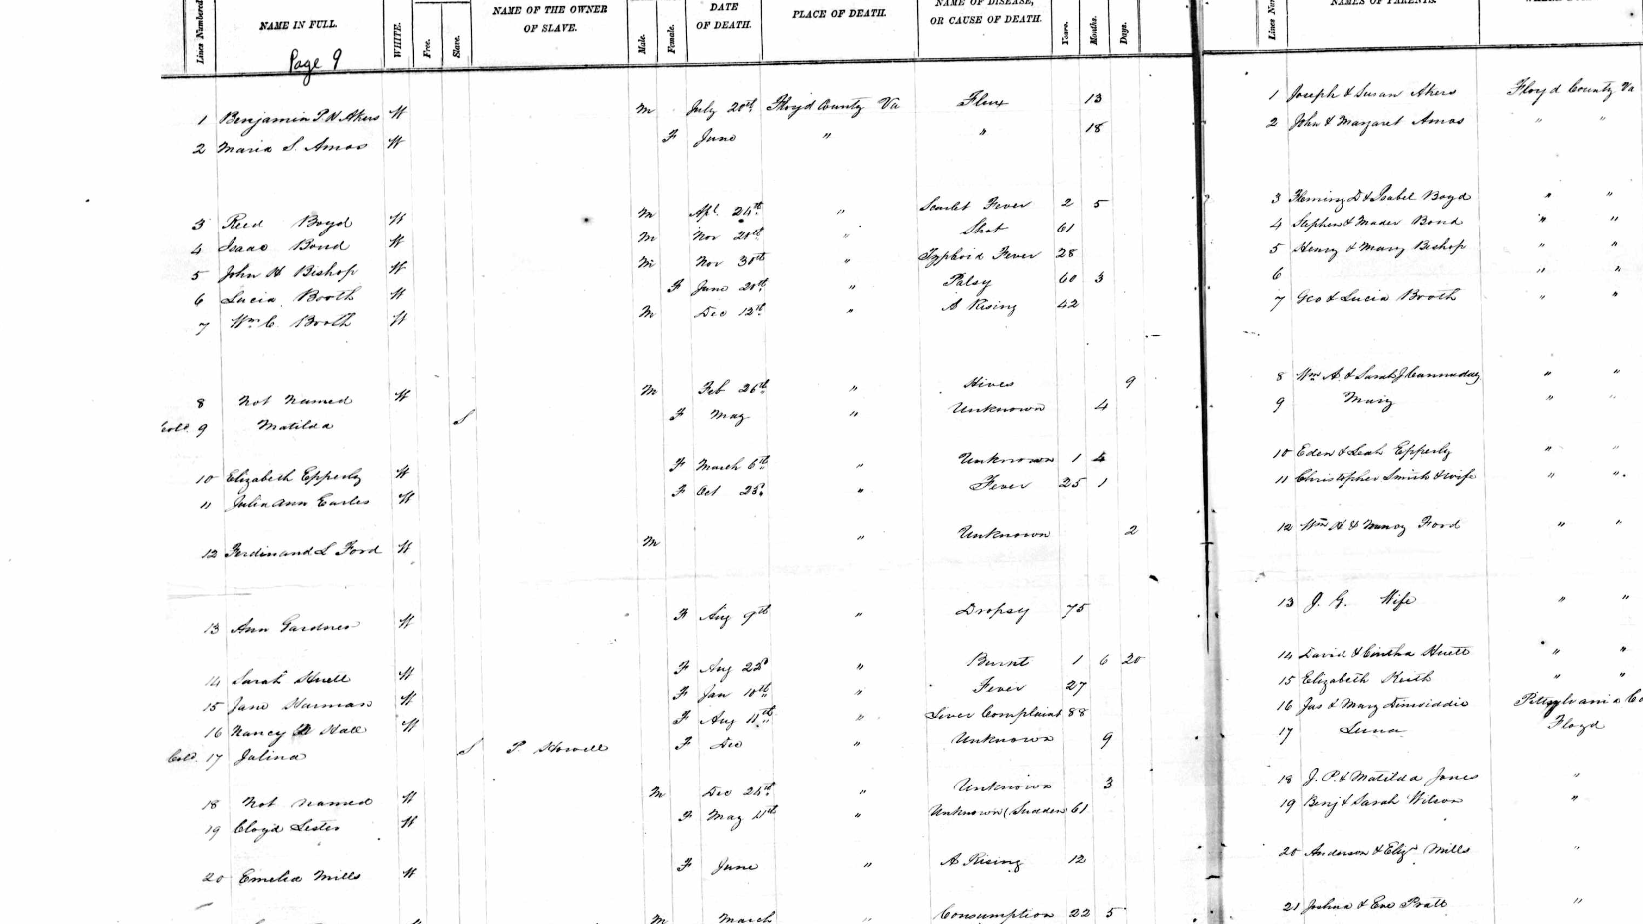 Lines Numbered NAME IN FULL. WHITE. Free. Slave. NAME OF THE OWNER OF SLAVE. Male. Female. DATE OF DEATH. PLACE OF DEATH. NAME OF DISEASE, OR CAUSE OF DEATH. Years. Months. Days. NAMES OF PARENTS.
Page 9
1 Benjamin P W Akers W M July 20th Floyd County Va Flux 13 1 Joseph & Susan Akers Floyd County Va
2 Maria S. Amos W F June " " 18 2 John & Margaret Amos " "
3 Reed Boyd W M Apl. 24th " Scarlet Fever 2 5 3 Fleming D & Isabel Boyd " "
4 Isaac Bond W M Nov " Shot 61 4 Stephen & Bond " "
5 John H Bishop W M Nov 30th " Typhoid Fever 28 5 Henry & Mary Bishop " "
6 Lucia Booth W F June 20th " Palsy 60 3 6 " "
7 Wm C Booth W M Dec 12th " A Rising 42 7 Geo & Lucia Booth " "
8 Not Named W M Feb 26th " Hives 9 8 Wm A. & Sarah J Cannaday " "
Cold. 9 Matilda S F May " Unknown 4 9 Mary " "
10 Elizabeth Epperly W F March 6th " Unknown 1 4 10 Eden & Leah Epperly " "
11 Julia Ann Earles W F Oct " Fever 25 1 11 Christopher Smith & wife " "
12 Ferdinand L Ford W M " Unknown 2 12 Wm H & Nancy Ford " "
13 Ann Gardner W F Aug 9th " Dropsy 75 13 J. G. Wife " "
14 Sarah Huett W F Aug 22d " Burnt 1 6 20 14 David & Cintha Huett " "
15 Jane Harman W F Jan 10th " Fever 27 15 Elizabeth Keith " "
16 Nancy Hall W F Aug 11th " Liver Complaint 88 16 Jas & Mary Dinwiddie Pittsylvania Co
Cold. 17 Julina S P Howell F Dec " Unknown 9 17 Luna Floyd
18 Not Named W M Dec 24th " Unknown 3 18 J. P. & Matilda Jones "
19 Cloyd Lester W F May " Unknown (Sudden 61 19 Benj & Sarah Wilson "
20 Emelia Mills W F June " A Rising 12 20 Anderson & Eliz Mills "
M March " Consumption 22 5 21 Joshua & Eve Pratt "